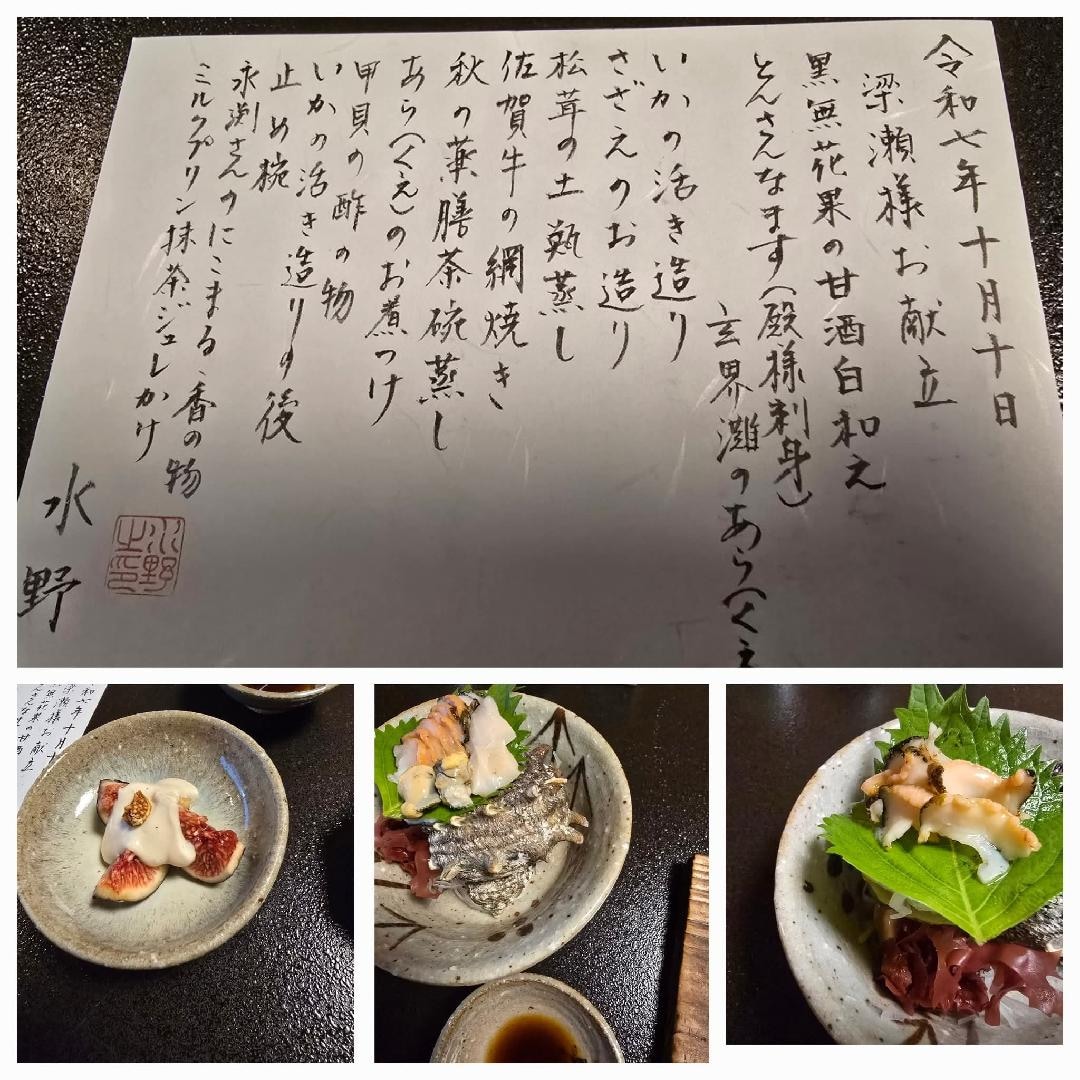 令和七年十月十日
梁瀬様お献立
黒無花果の甘酒白和え
とんさんなます(殿様刺身)
玄界灘のあら(くえ
いかの活き造り
さざえのお造り
松茸の土瓶蒸し
佐賀牛の網焼き
秋の薬膳茶碗蒸し
あら(くえ)のお煮つけ
甲貝の酢の物
いかの活き造りの後
止め椀
永渕さんのにこまる、香の物
ミルクプリン抹茶ジュレかけ
水野
水野
之印